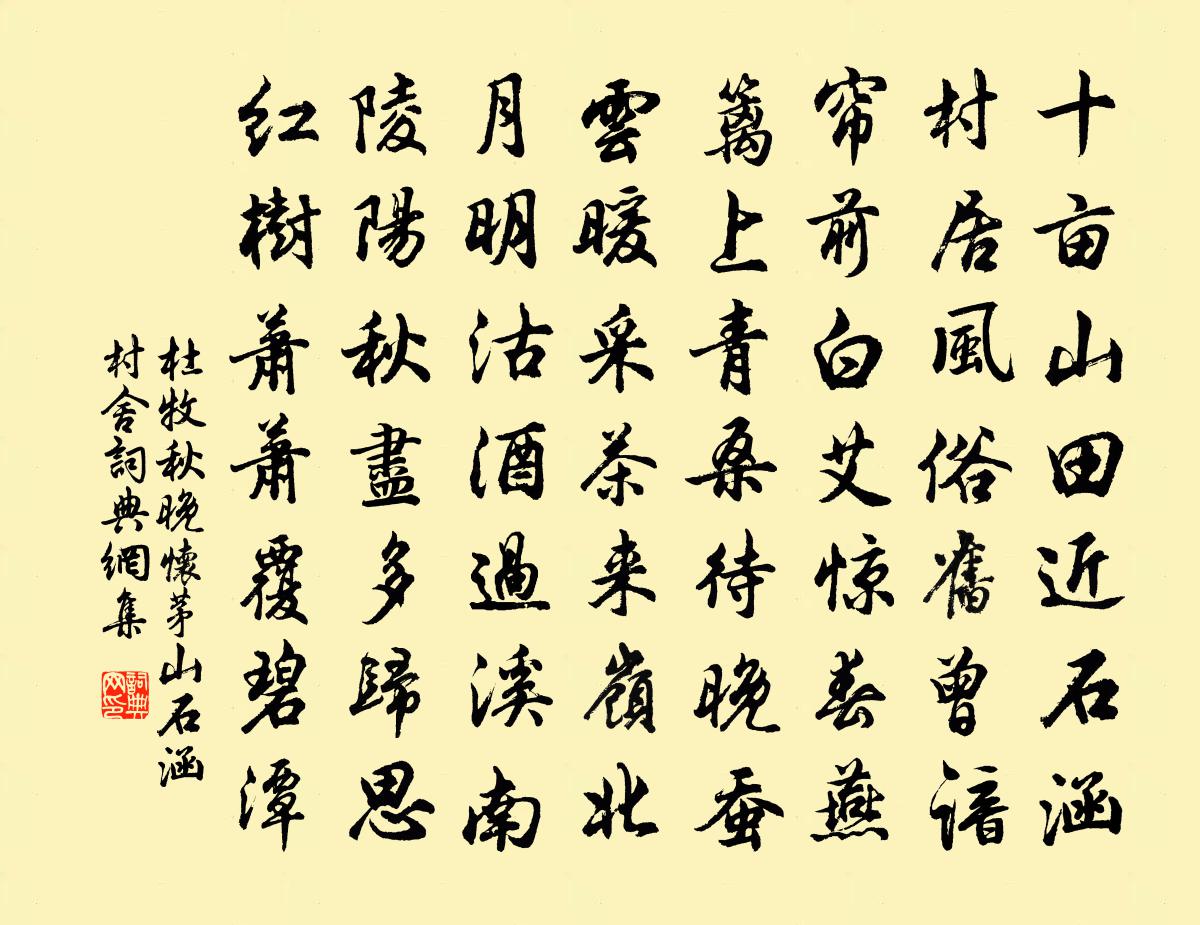 十亩山田近石涵
村居風俗舊曾諳
帘前白艾惊春燕
篱上青桑待晚蚕
雲暖采茶来嶺北
月明沽酒過溪南
陵陽秋盡多歸思
红樹蕭蕭覆碧潭
杜牧秋晚懷茅山石涵
村舍詞典網集
詞典网印